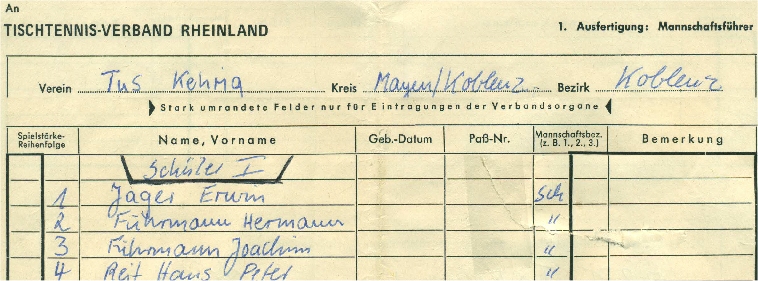 An
TISCHTENNIS-VERBAND RHEINLAND
1. Ausfertigung: Mannschaftsführer
Verein Tus Kehrig Kreis Mayen/Koblenz Bezirk Koblenz
Stark umrandete Felder nur für Eintragungen der Verbandsorgane
Spielstärke-Reihenfolge Name, Vorname Geb.-Datum Paß-Nr. Mannschaftsbez. (z. B. 1., 2., 3.) Bemerkung
Schüler I
1 Jäger Erwin Sch
2 Führmann Hermann "
3 Führmann Joachim "
4 Reif Hans Peter "